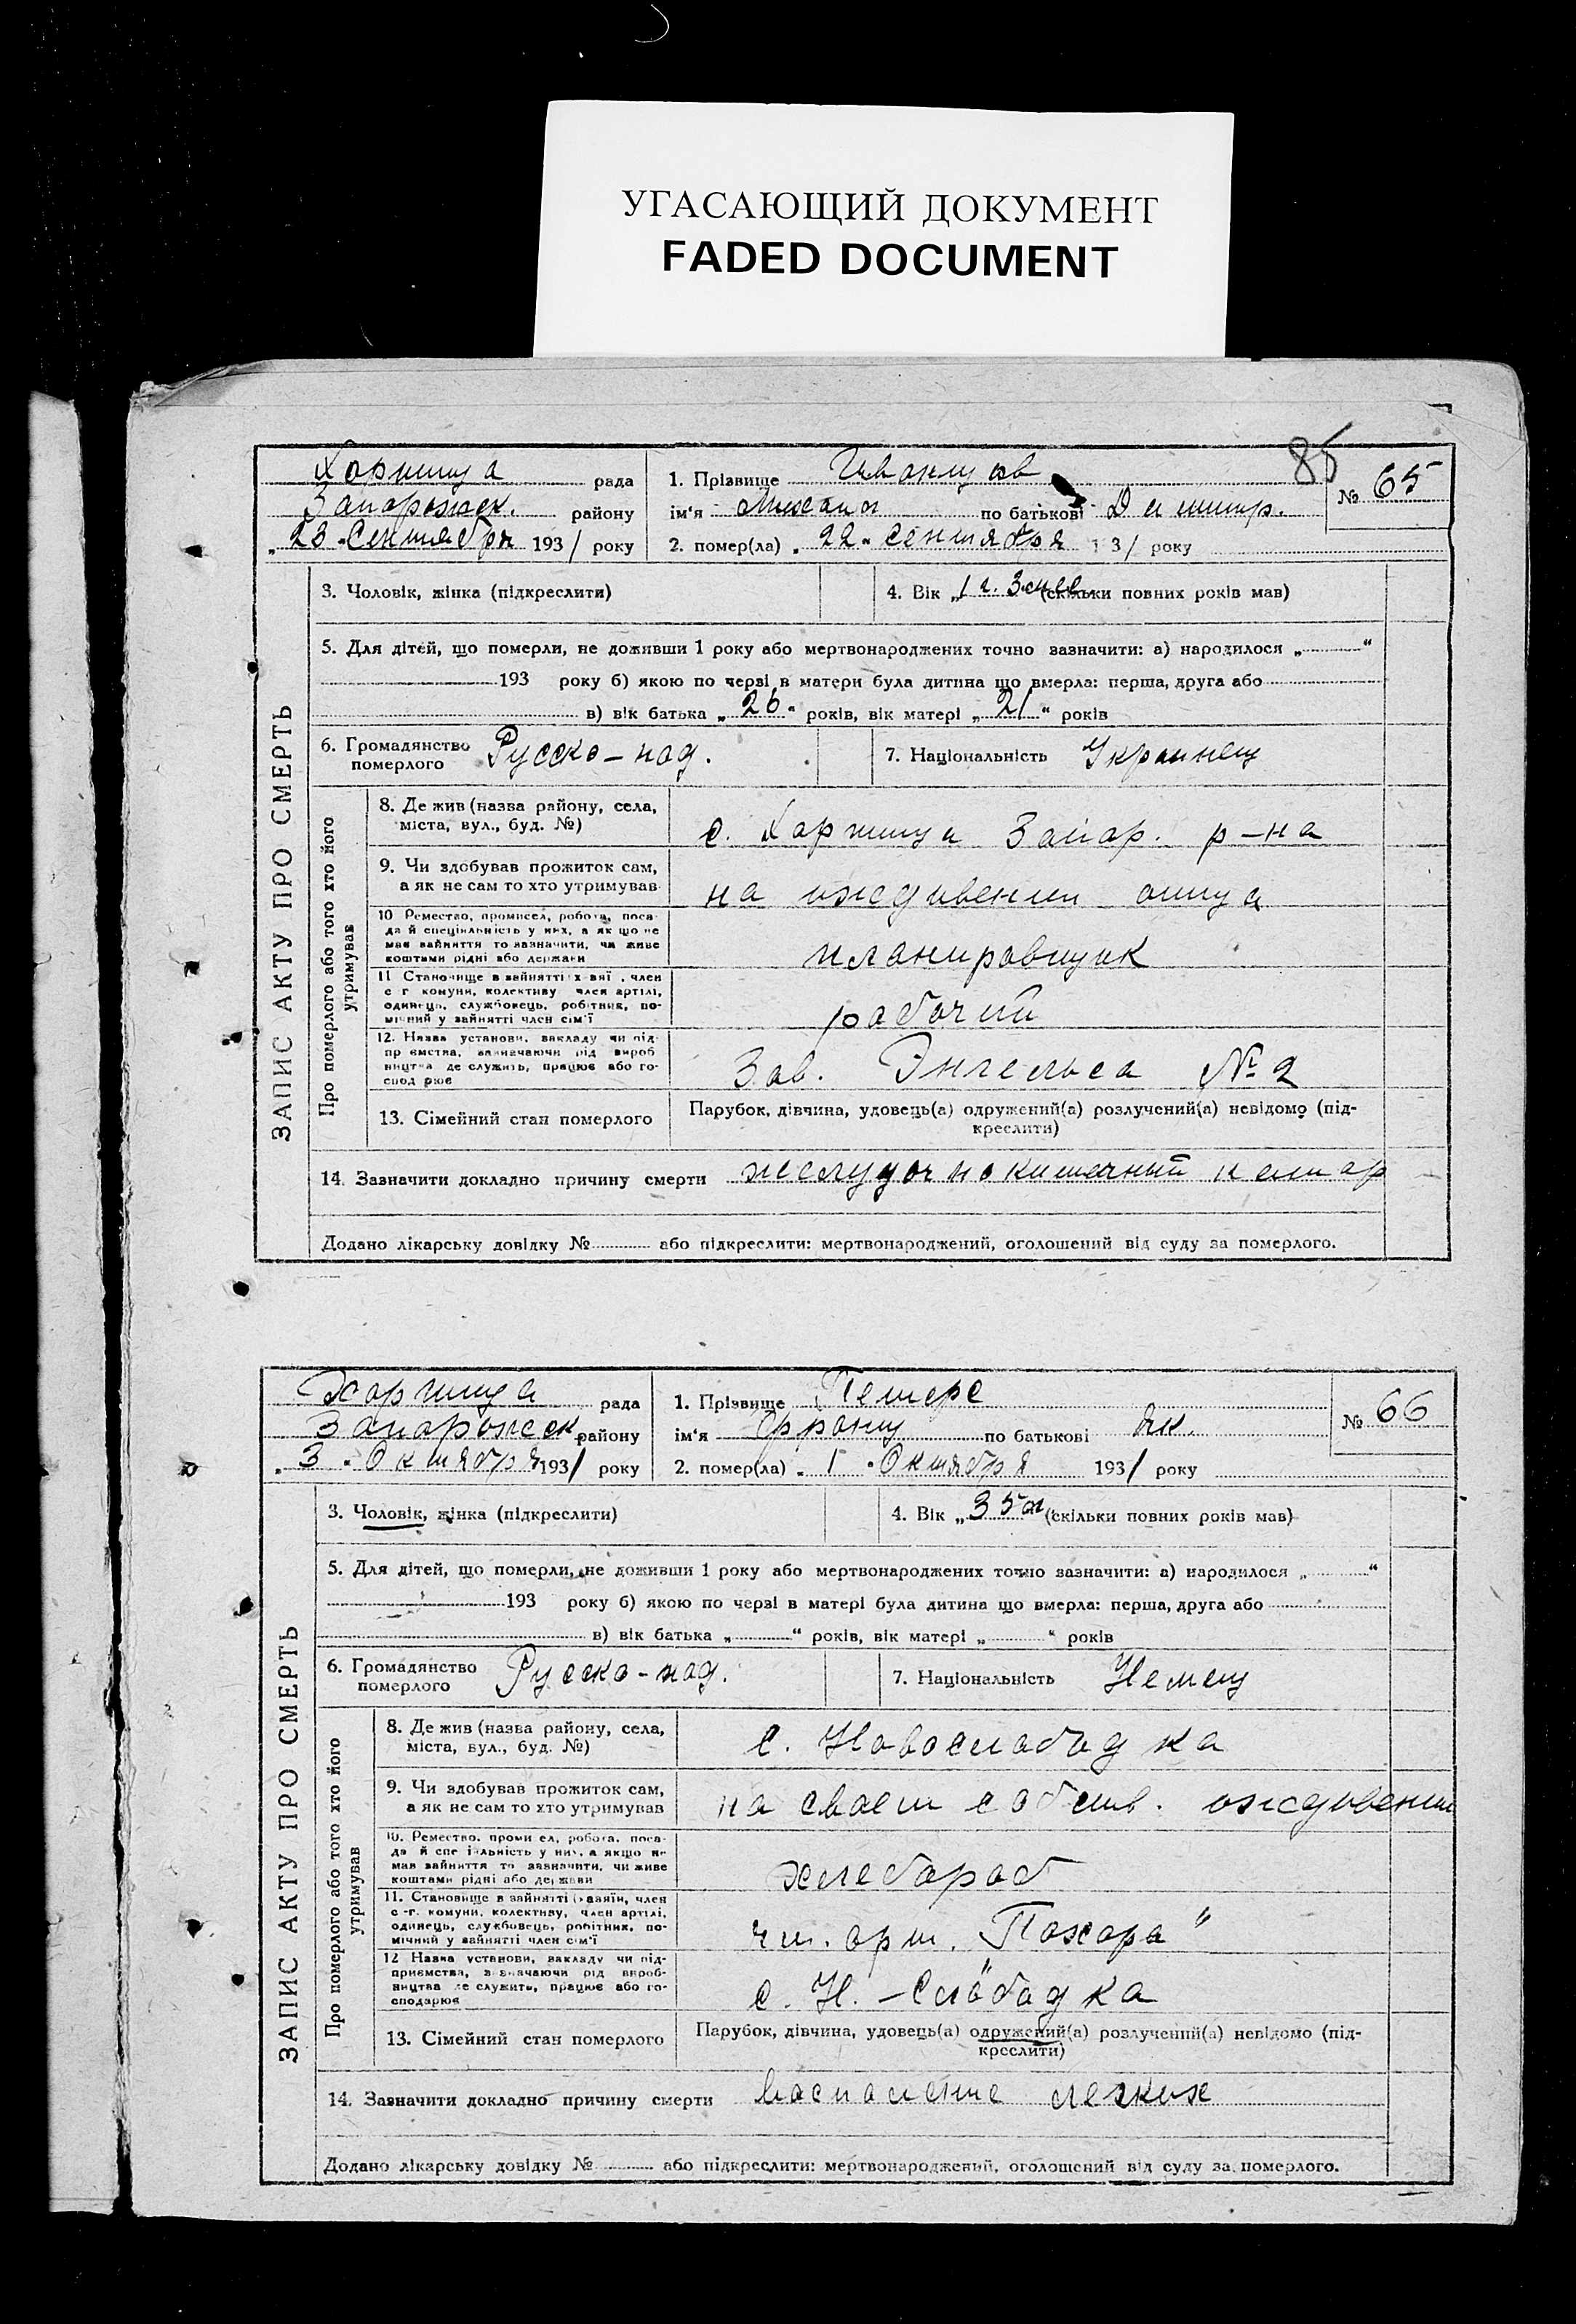 УГАСАЮЩИЙ ДОКУМЕНТ
FADED DOCUMENT
85
Хортица рада
Запорожск. району
„23„ Сентября 1931 року
1. Прізвище
№ 65
ім‘я Михаил по батькові Димитр.
2. помер(ла) „22„ Сентября 131 року
ЗАПИС АКТУ ПРО СМЕРТЬ
3. Чоловік, жінка (підкреслити)
4. Вік „1 г. 3 мес. (скільки повних років мав)
5. Для дітей, що померли, не доживши 1 року або мертвонароджених точно зазначити: а) народилося „ “
193 року б) якою по черзі в матери була дитина що вмерла: перша, друга або
в) вік батька „26“ років, вік матері „21“ років
6. Громадянство померлого Русско-под.
7. Національність Украинец
Про померлого або того хто його утримував
8. Де жив (назва району, села,
міста, вул., буд. №)
с. Хортица Запор. р-на
9. Чи здобував прожиток сам,
а як не сам то хто утримував
на иждивении отца
10 Ремество, промисел, робота, поса-
да й спеціяльність у них, а як що не
мав зайняття то зазначити, чи живе
коштами рідні або держави
планировщик
11 Становище в зайнятті , член
с г комуни, колективу член артілі,
одинець, службовець, робітник, по-
мічний у зайнятті член сім‘ї
рабочий
12. Назва установи, закладу чи під-
пр ємства, зазначаючи рід вироб
ництва де служить, працює або го-
спод рює
Зав. Энгельса № 2
13. Сімейний стан померлого
Парубок, дівчина, удовець(а) одружений(а) розлучений(а) невідомо (під-
креслити)
14. Зазначити докладно причину смерти желудочнокишечный катар
Додано лікарську довідку № або підкреслити: мертвонароджений, оголошений від суду за померлого.
Хортица рада
Запорожск району
„3„ Октября 1931 року
1. Прізвище Петерс
№ 66
ім‘я Франц по батькові Як.
2. помер(ла) „1„ Октября 1931 року
ЗАПИС АКТУ ПРО СМЕРТЬ
3. Чоловік, жінка (підкреслити)
4. Вік „35 л (скільки повних років мав)
5. Для дітей, що померли, не доживши 1 року або мертвонароджених точно зазначити: а) народилося „ “
193 року б) якою по черзі в матері була дитина що вмерла: перша, друга або
в) вік батька „ “ років, вік матері „ “ років
6. Громадянство померлого Русско-под.
7. Національність Немец
Про померлого або того хто його утримував
8. Де жив (назва району, села,
міста, вул., буд. №)
с. Новослободка
9. Чи здобував прожиток сам,
а як не сам то хто утримував
на своем собств. иждивении
10. Ремество, проми ел, робота, поса-
да й спе іяльність у них, а якщо не
мав зайняття то зазначити, чи живе
коштами рідні або держави
хлебороб
11. Становище в зайнятті , член
с -г. комуни, колективу, член артілі,
одинець, службовець, робітник, по-
мічний у зайнятті член сім‘ї
чл. арт. „Пахарь“
12 Назва установи, закладу чи під-
приємства, зазначаючи рід вироб-
ництва де служить, працює або го-
сподарює
с. Н.-Слободка
13. Сімейний стан померлого
Парубок, дівчина, удовець(а) одружений(а) розлучений(а) невідомо (під-
креслити)
14. Зазначити докладно причину смерти Воспаление легких
Додано лікарську довідку № або підкреслити: мертвонароджений, оголошений від суду за померлого.